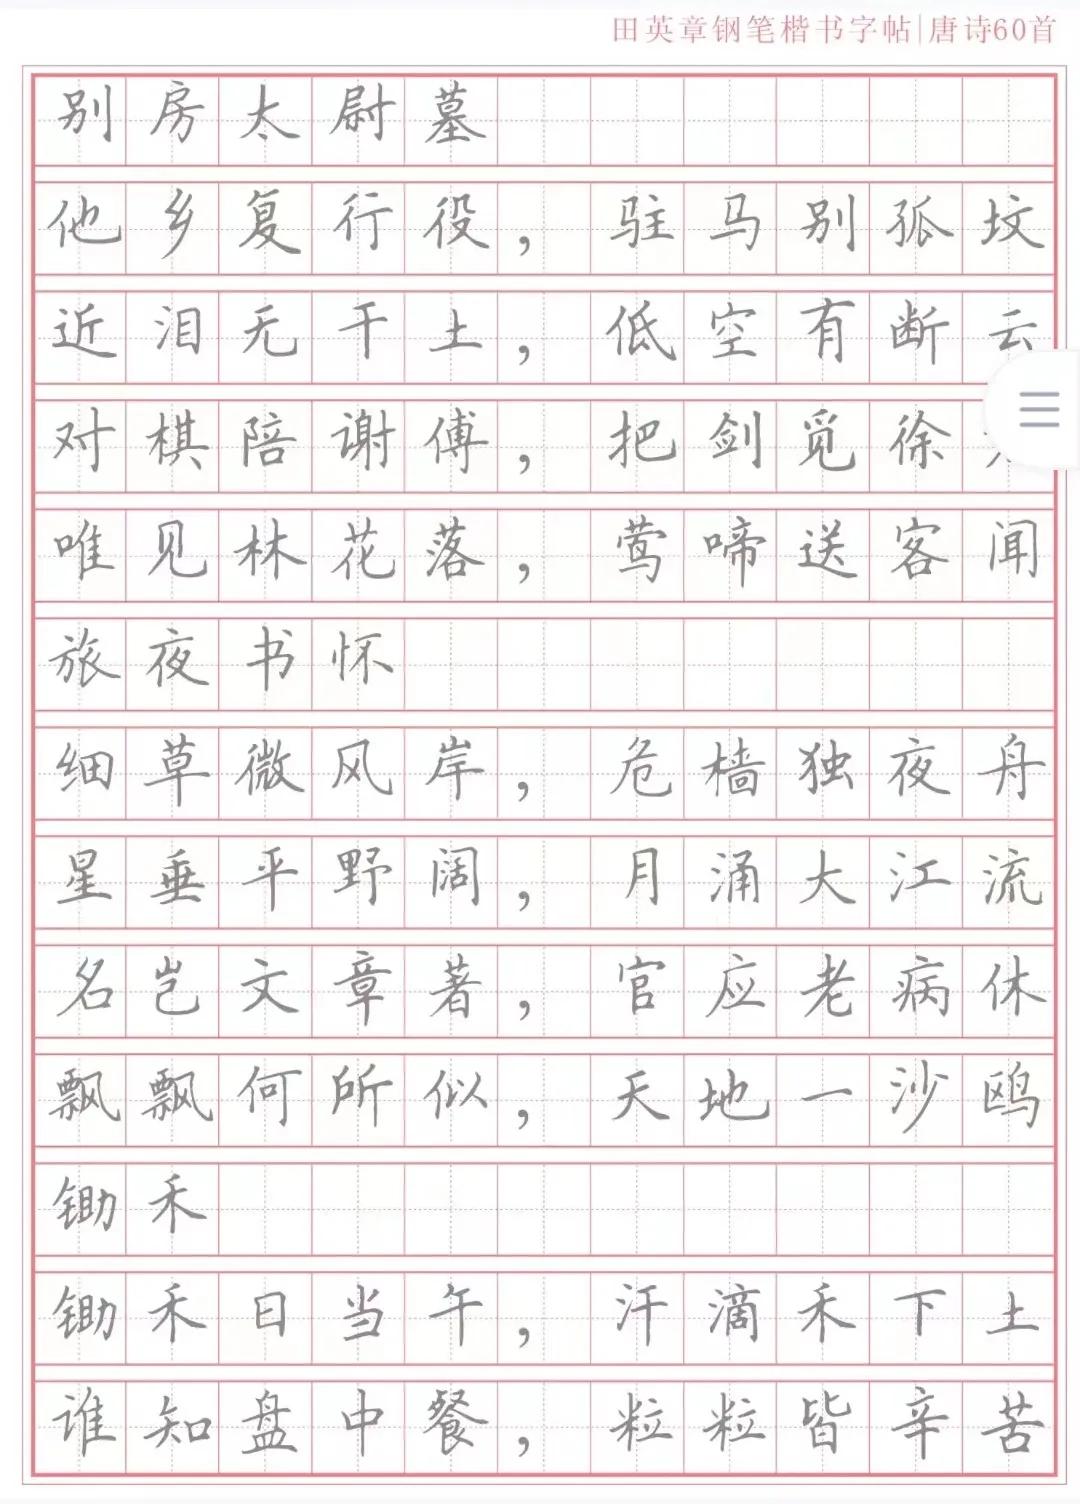 田英章钢笔楷书字帖|唐诗60首
别房太尉墓
他乡复行役，驻马别孤坟
近泪无干土，低空有断云
对棋陪谢傅，把剑觅徐
唯见林花落，莺啼送客闻
旅夜书怀
细草微风岸，危樯独夜舟
星垂平野阔，月涌大江流
名岂文章著，官应老病休
飘飘何所似，天地一沙鸥
锄禾
锄禾日当午，汗滴禾下土
谁知盘中餐，粒粒皆辛苦